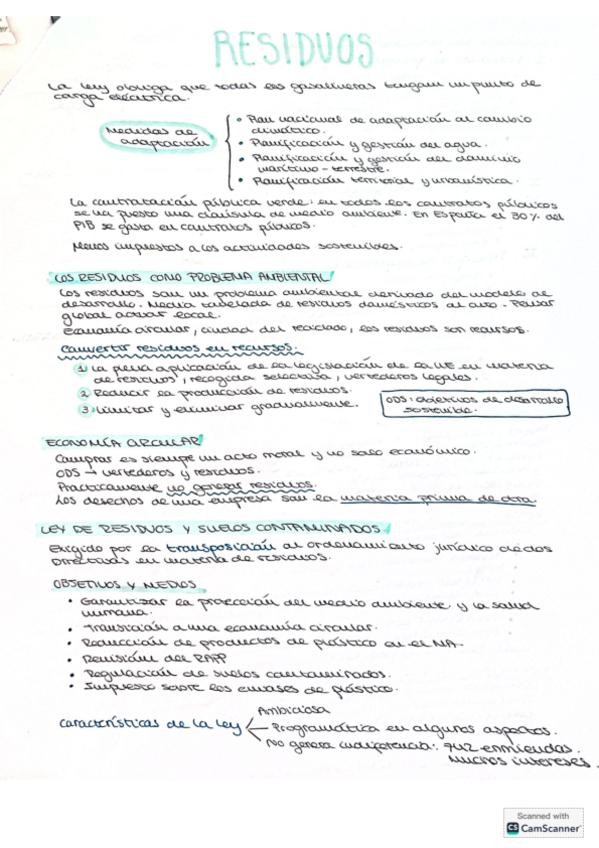 RESIDUOS
La ley obliga que todas las gasolineras tengan un punto de
carga eléctrica.
Medidas de
adaptación
• Plan nacional de adaptación al cambio
climático.
• Planificación y gestión del agua.
• Planificación y gestión del dominio
marítimo-terrestre.
• Planificación territorial y urbanística.
La contratación pública verde: en todos los contratos públicos
se ha puesto una cláusula de medio ambiente. En España el 30% del
PIB se gasta en contratos públicos.
Menos impuestos a las actividades sostenibles.
LOS RESIDUOS COMO PROBLEMA AMBIENTAL
Los residuos son un problema ambiental derivado del modelo de
desarrollo. Media tonelada de residuos domésticos al año. Pensar
global actuar local.
Economía circular, ciudad del reciclado, los residuos son recursos.
Convertir residuos en recursos.
1 La plena aplicación de la legislación de la UE en materia
de residuos, recogida selectiva, vertederos legales.
2 Reducir la producción de residuos.
3 Limitar y eliminar gradualmente.
ODS: objetivos de desarrollo
sostenible.
ECONOMÍA CIRCULAR
Comprar es siempre un acto moral y no solo económico.
ODS → vertederos y residuos.
Prácticamente no generar residuos.
Los desechos de una empresa son la materia prima de otra
LEY DE RESIDUOS Y SUELOS CONTAMINADOS
Exigido por la transposición al ordenamiento jurídico de dos
Directivas en materia de residuos.
OBJETIVOS Y MEDIOS
• Garantizar la protección del medio ambiente y la salud
humana.
• Transición a una economía circular.
• Reducción de productos de plástico en el MA.
• Revisión del RAPP
• Regulación de suelos contaminados.
• Impuesto sobre los envases de plástico.
Características de la ley
Ambiciosa
Programática en algunos aspectos.
No genera indiferencia: 942 enmiendas.
Muchos intereses.
Scanned with
CS CamScanner